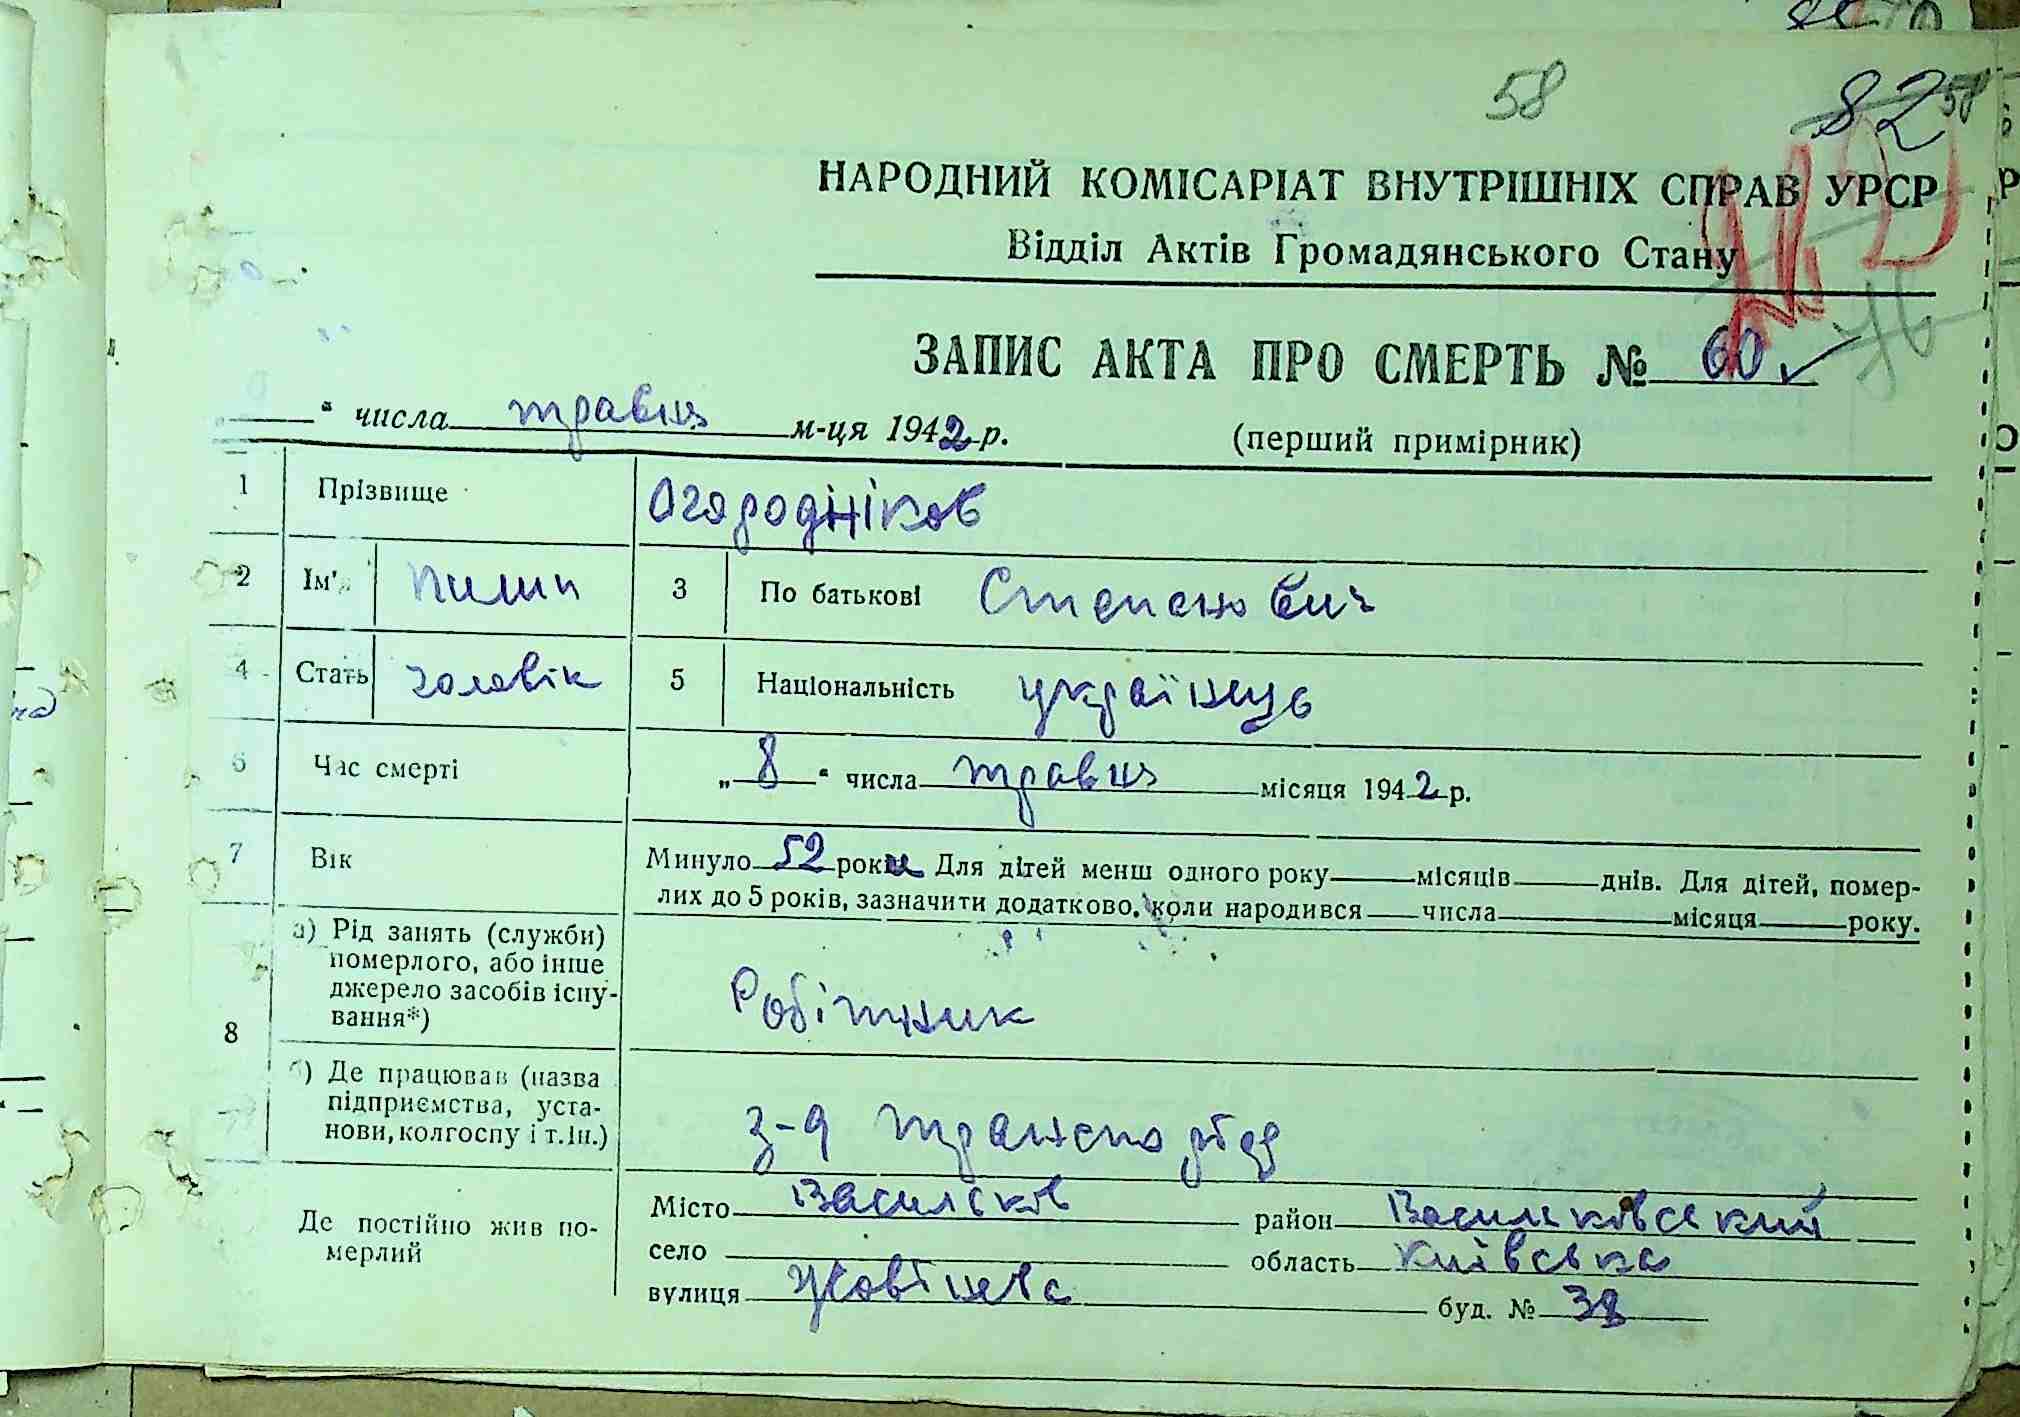 58
82 58
НАРОДНИЙ КОМІСАРІАТ ВНУТРІШНІХ СПРАВ УРСР
Відділ Актів Громадянського Стану
76
ЗАПИС АКТА ПРО СМЕРТЬ № 60
"____" числа травня м-ця 1942 р. (перший примірник)
1 Прізвище Огородніков
2 Ім'я Пилип 3 По батькові Степанович
4 Стать чоловік 5 Національність українець
6 Час смерті „8" числа травня місяця 1942 р.
7 Вік Минуло 52 роки Для дітей менш одного року____місяців____днів. Для дітей, помер-
лих до 5 років, зазначити додатково, коли народився____числа____місяця____року.
8 а) Рід занять (служби)
померлого, або інше
джерело засобів існу-
вання*)
Робітник
б) Де працював (назва
підприємства, уста-
нови, колгоспу і т.ін.)
з-д
Де постійно жив по-
мерлий
Місто Васильків район Васильківський
село ____ область Київська
вулиця ____ буд. № 38